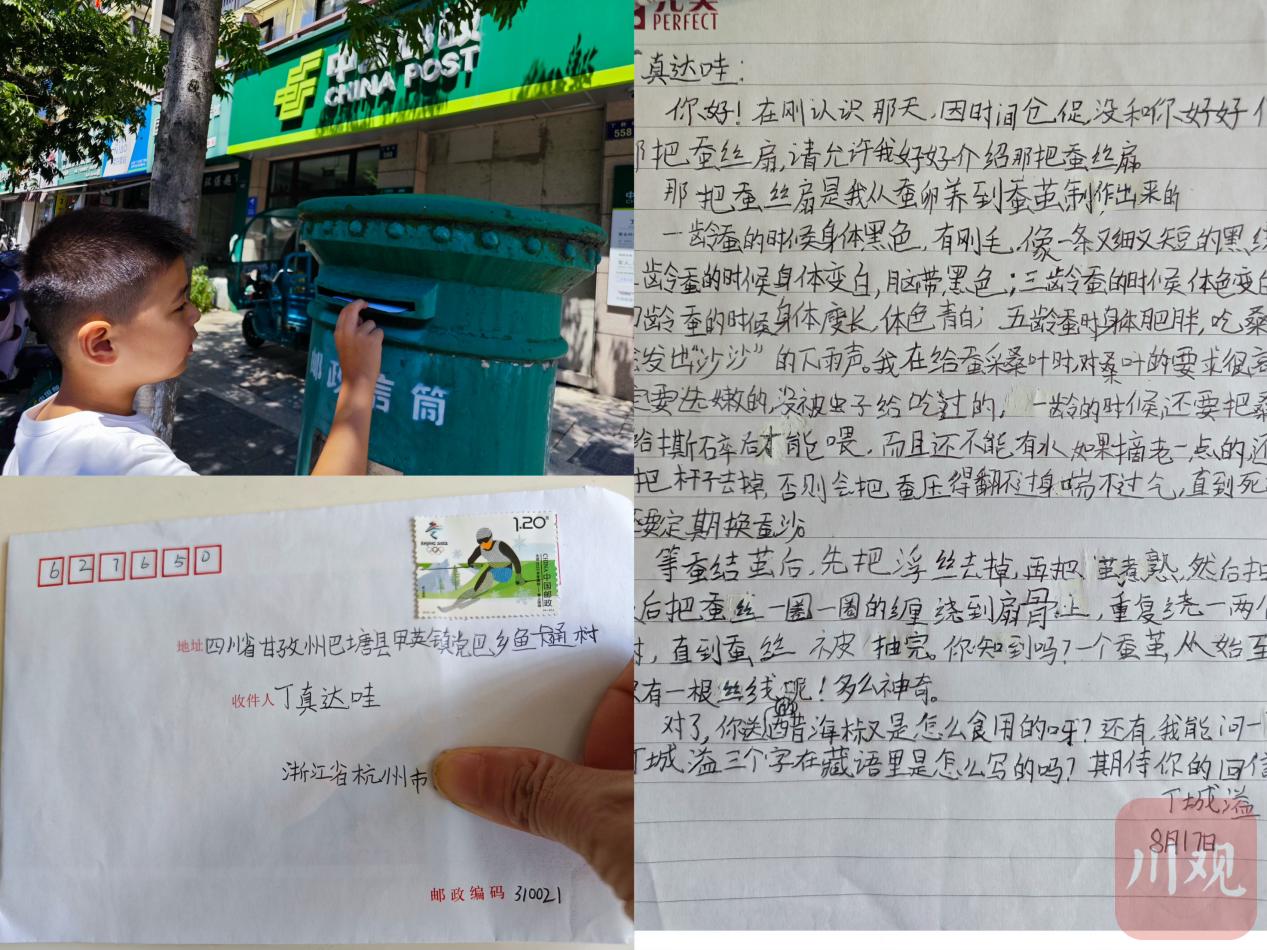 CHINA POST
558
邮政信筒
627650
BEIJING 2022
1.20元
中国邮政
CHINA
地址 四川省甘孜州巴塘县甲英镇党巴乡鱼卡通村
收件人 丁真达哇
浙江省杭州市
邮政编码 310021
PERFECT
真达哇:
你好!在刚认识那天,因时间仓促,没和你好好
把蚕丝扇,请允许我好好介绍那把蚕丝扇
那把蚕丝扇是我从蚕卵养到蚕茧制作出来的
一龄蚕的时候身体黑色,有刚毛,像一条又细又短的黑
龄蚕的时候身体变白,脑带黑色;三龄蚕的时候体色变白
龄蚕的时候身体变长,体色青白;五龄蚕时身体肥胖,吃桑
发出“沙沙”的下雨声。我在给蚕采桑叶时,对桑叶的要求很高
要选嫩的,没被虫子给吃过的,一龄的时候还要把桑
给撕碎后才能喂,而且还不能有水,如果摘老一点的还
把杆子去掉,否则会把蚕压得翻不过身喘不过气,直到死
要定期换蚕沙。
等蚕结茧后,先把浮丝去掉,再把茧煮熟,然后抽
后把蚕丝一圈一圈的缠绕到扇骨上,重复绕一两个
时,直到蚕丝被抽完。你知到吗?一个蚕茧,从始至
有一根丝线呢!多么神奇。
对了,你送的醋海椒又是怎么食用的呀?还有,我能问一
丁城溢三个字在藏语里是怎么写的吗?期待你的回信
丁城溢
8月17日
川观